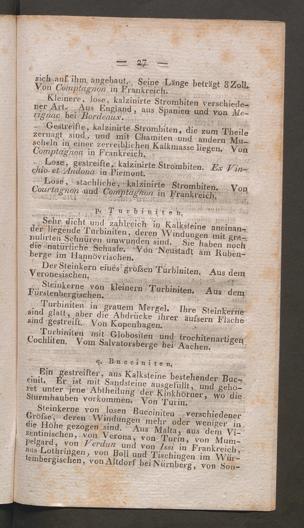 — 27 —
sich auf ihm angebaut. Seine Länge beträgt 8 Zoll.
Von Comptagnon in Frankreich.
Kleinere, lose, kalzinirte Strombiten verschiede-
ner Art. Aus England, aus Spanien und von Me-
rignac bei Bordeaux.
Gestreifte, kalzinirte Strombiten, die zum Theile
zernagt sind, und mit Chamiten und andern Mu-
scheln in einer zerreiblichen Kalkmasse liegen. Von
Comptagnon in Frankreich.
Lose, gestreifte, kalzinirte Strombiten. Ex Vin-
chio et Andona in Piemont.
Lose, stachliche, kalzinirte Strombiten. Von
Courtagnon und Comptagnon in Frankreich.
p. Turbiniten.
Sehr dicht und zahlreich in Kalksteine aneinan-
der liegende Turbiniten, deren Windungen mit gra-
nulirten Schnüren umwunden sind. Sie haben noch
die natürliche Schaale. Von Neustadt am Ruben-
berge im Hannövrischen.
Der Steinkern eines großen Turbiniten. Aus dem
Veronesischen.
Steinkerne von kleinern Turbiniten. Aus dem
Fürstenbergischen.
Turbiniten in grauem Mergel. Ihre Steinkerne
sind glatt, aber die Abdrücke ihrer äußern Fläche
sind gestreift. Von Kopenhagen.
Turbiniten mit Globositen und trochitenartigen
Cochliten. Vom Salvatorsberge bei Aachen.
q. Bucciniten.
Ein gestreifter, aus Kalksteine bestehender Buc-
cinit. Er ist mit Sandsteine ausgefüllt, und gehö-
ret unter jene Abtheilung der Kinkhörner, wo die
Sturmhauben vorkommen. Von Turin.
Steinkerne von losen Bucciniten verschiedener
Größe, deren Windungen mehr oder weniger in
die Höhe gezogen sind. Aus Malta, aus dem Vi-
zentinischen, von Verona, von Turin, von Mum-
pelgard, von Verdun und von Issi in Frankreich,
aus Lothringen, von Boll und Tischingen im Wür-
tembergischen, von Altdorf bei Nürnberg, von Son-